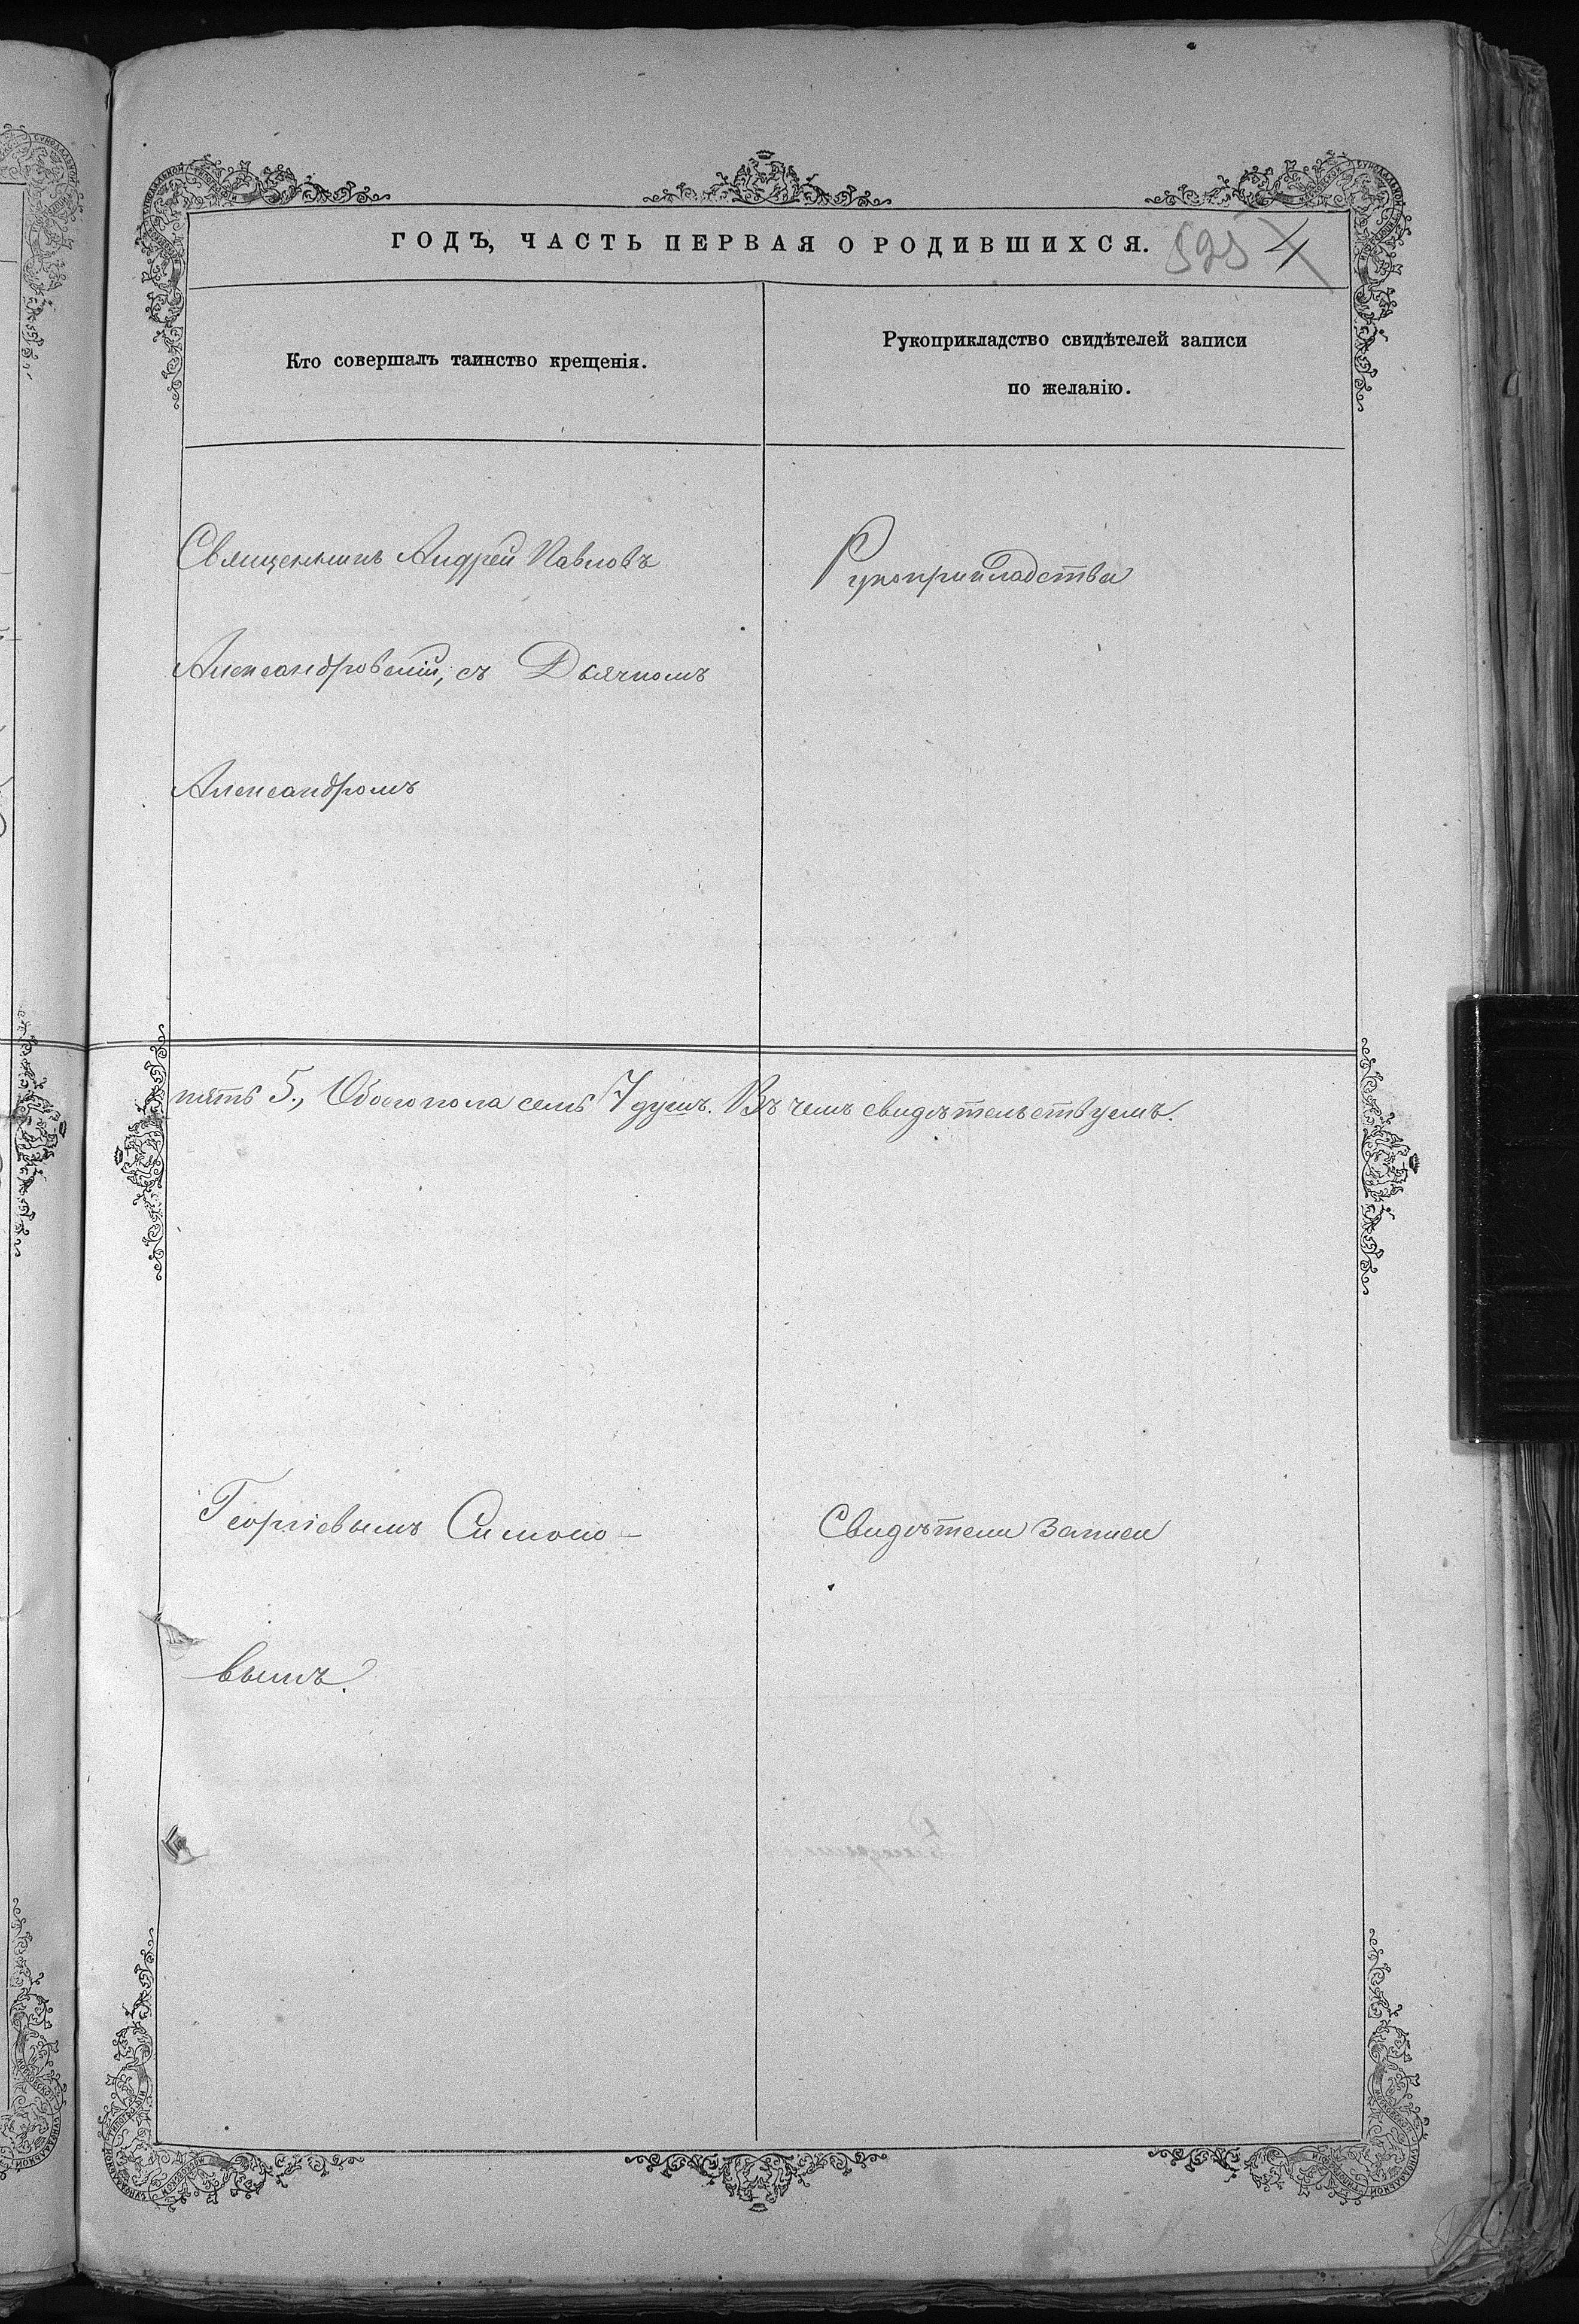 ГОДЪ, ЧАСТЬ ПЕРВАЯ О РОДИВШИХСЯ. 525 4
Кто совершалъ таинство крещенія.
Рукоприкладство свидѣтелей записи
по желанію.
Священникъ Андрей Павловъ
Александровскій, съ Дьячкомъ
Александромъ
Рукоприкладства
пять 5., Обоего пола семь 7 душъ. Въ чемъ свидѣтельствуемъ.
Георгіевымъ Симоно-
вымъ.
Свидѣтели записи